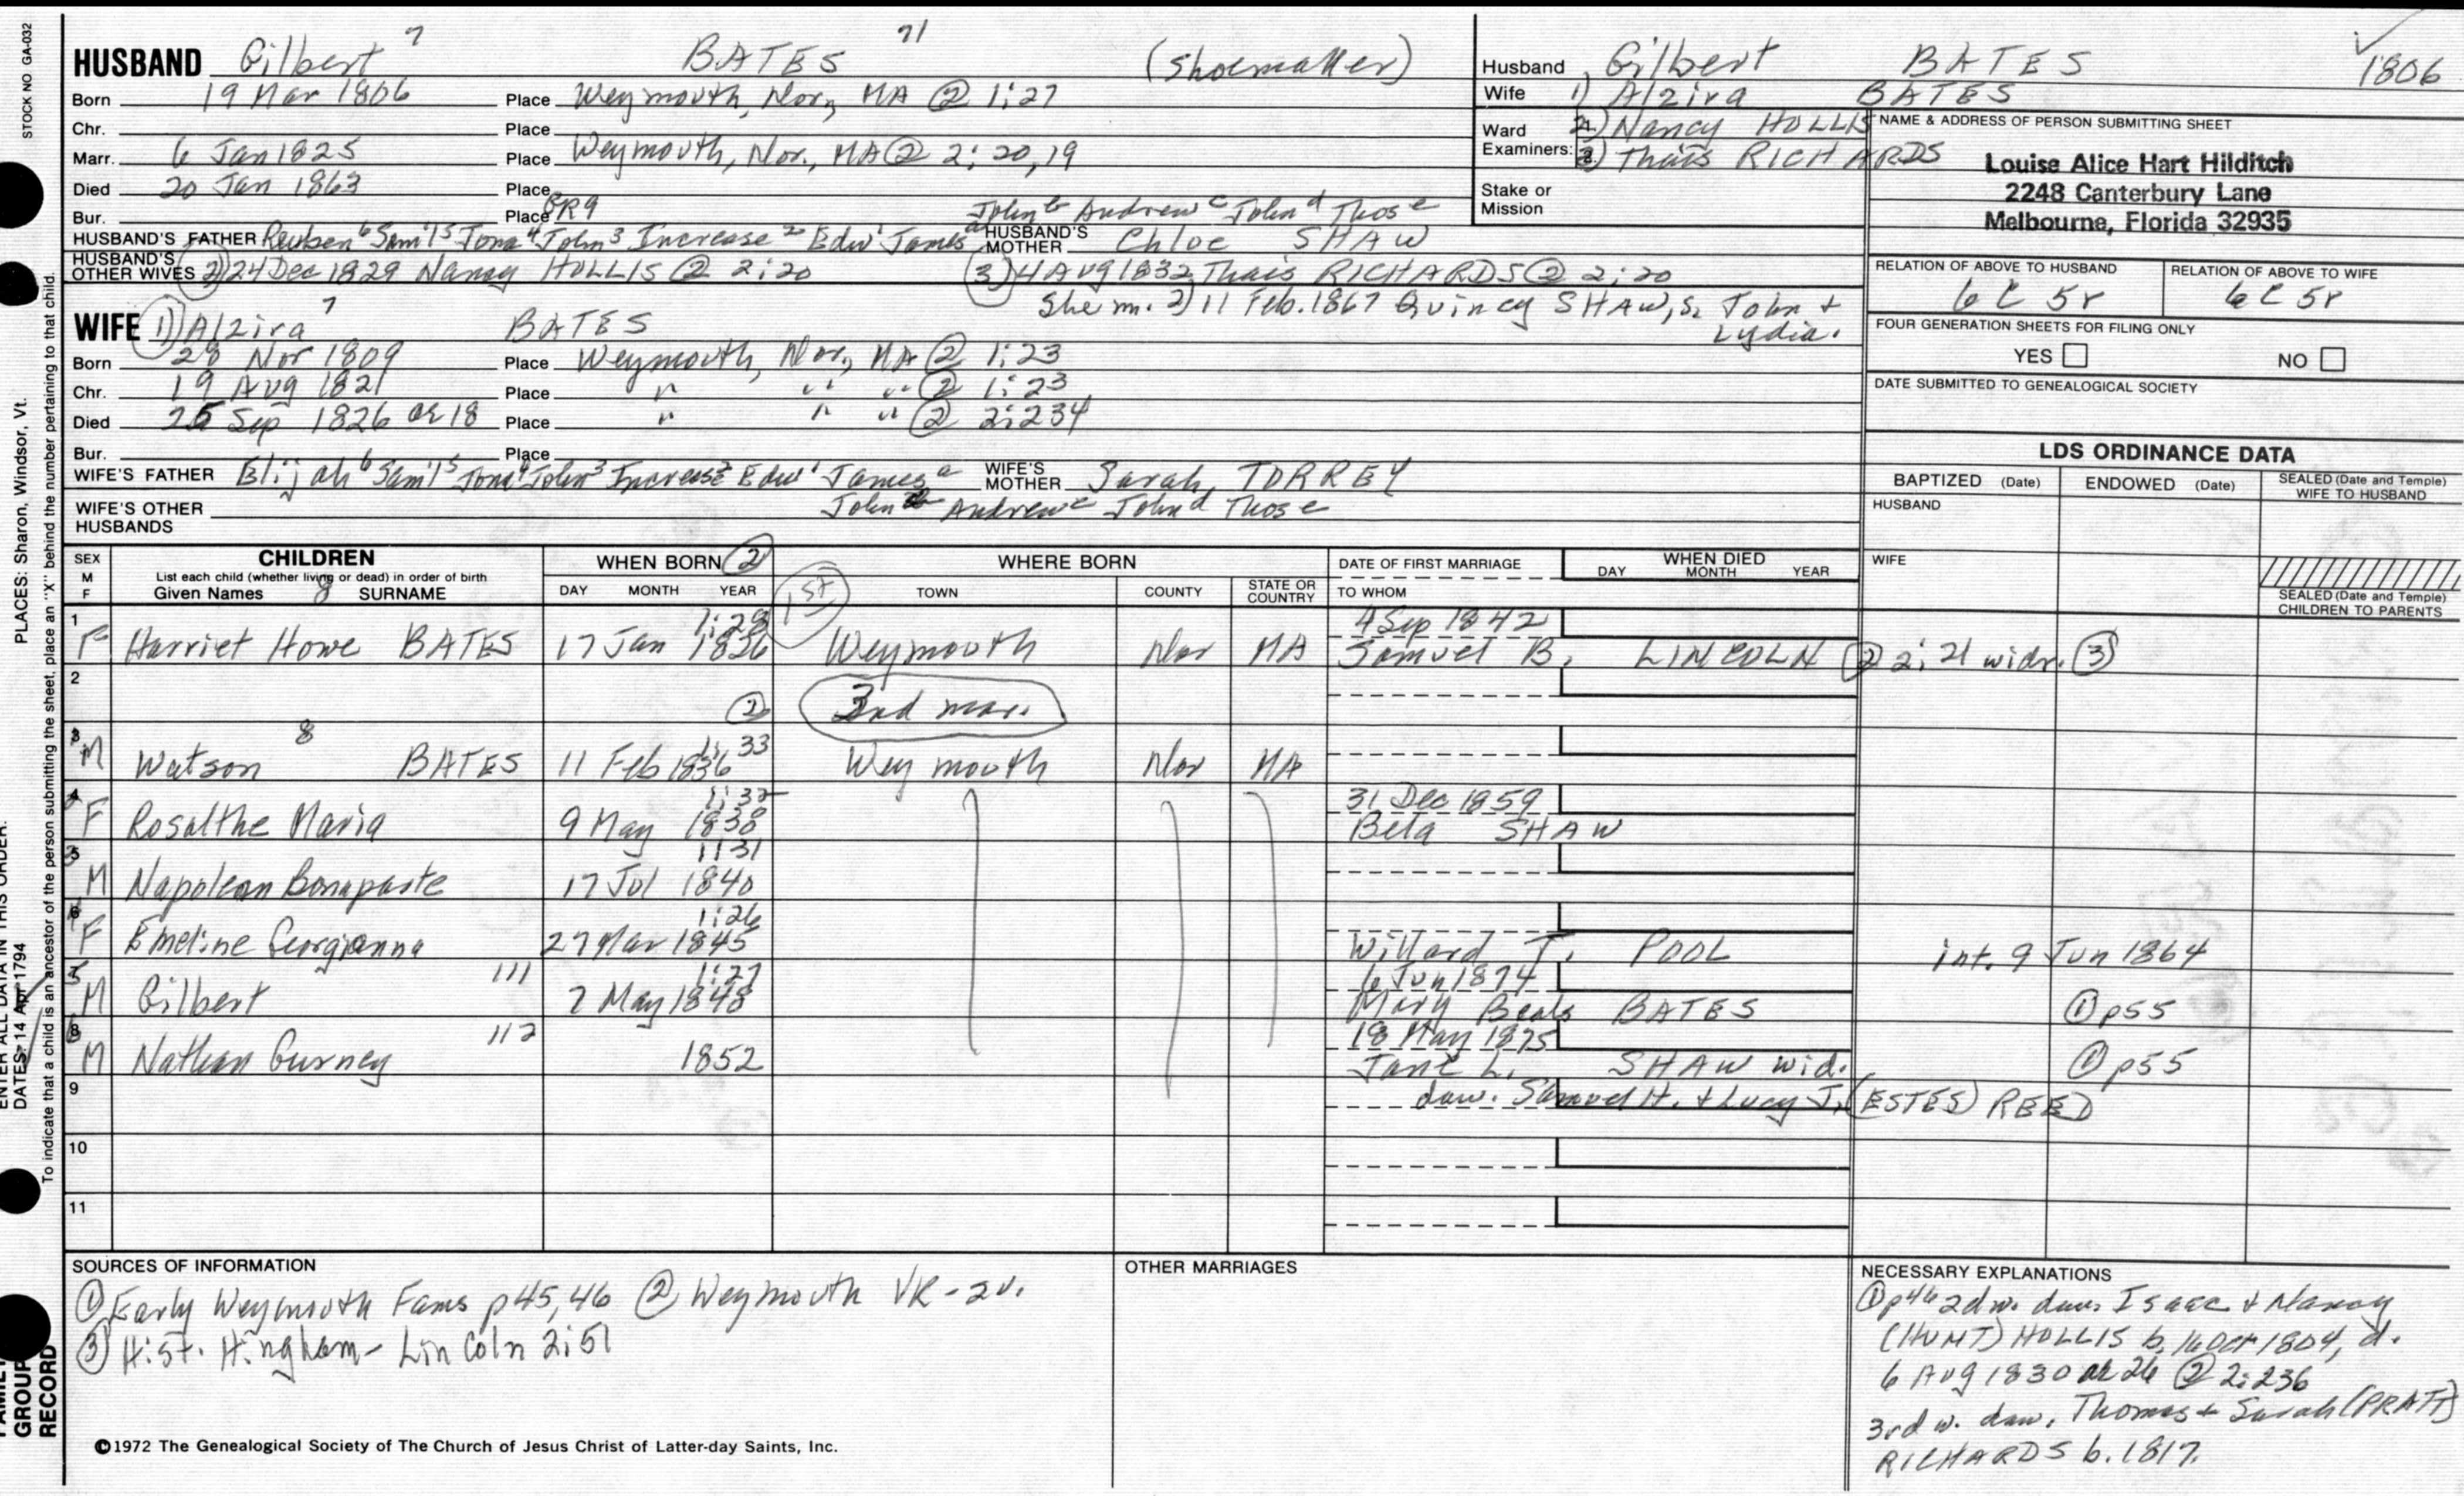 STOCK NO GA-032
HUSBAND Gilbert 7 BATES 71 (shoemaker)
Born 19 Mar 1806 Place Weymouth, Nor, MA @ 1:27
Chr. Place
Marr. 6 Jan 1825 Place Weymouth, Nor., MA @ 2:20,19
Died 20 Jan 1863 Place
Bur. Place GR9
John b Andrew c John d Thos e
HUSBAND'S FATHER Reuben 6 Sam'l 5 Jona 4 John 3 Increase 2 Edw 1 James a HUSBAND'S MOTHER Chloe SHAW
HUSBAND'S OTHER WIVES 2) 24 Dec 1829 Nancy HOLLIS @ 2:20 (3) 4 Aug 1832 Thais RICHARDS @ 2:20
She m. 2) 11 Feb. 1867 Quincy SHAW, s. John +
Lydia.
WIFE 1) Alzira 7 BATES
Born 28 Nov 1809 Place Weymouth, Nor, MA ② 1:23
Chr. 19 Aug 1821 Place " " " ② 1:23
Died 25 Sep 1826 ae 18 Place " " " ② 2:234
Bur. Place
WIFE'S FATHER Elijah 6 Sam'l 5 Jona 4 John 3 Increase 2 Edw 1 James a WIFE'S MOTHER Sarah TORREY
John Andrew c John d Thos e
WIFE'S OTHER HUSBANDS
Husband Gilbert BATES 1806
Wife 1) Alzira BATES
Ward 2) Nancy HOLLIS
Examiners: 3) Thais RICHARDS
Stake or
Mission
NAME & ADDRESS OF PERSON SUBMITTING SHEET
Louise Alice Hart Hilditch
2248 Canterbury Lane
Melbourne, Florida 32935
RELATION OF ABOVE TO HUSBAND RELATION OF ABOVE TO WIFE
6 C 5r 6 C 5r
FOUR GENERATION SHEETS FOR FILING ONLY
YES NO
DATE SUBMITTED TO GENEALOGICAL SOCIETY
LDS ORDINANCE DATA
BAPTIZED (Date) ENDOWED (Date) SEALED (Date and Temple)
WIFE TO HUSBAND
HUSBAND
WIFE
SEALED (Date and Temple)
CHILDREN TO PARENTS
SEX CHILDREN WHEN BORN ② WHERE BORN DATE OF FIRST MARRIAGE WHEN DIED
M List each child (whether living or dead) in order of birth DAY MONTH YEAR
F Given Names 8 SURNAME DAY MONTH YEAR 1st TOWN COUNTY STATE OR COUNTRY TO WHOM
1 1:29 4 Sep 1842
F Harriet Howe BATES 17 Jan 1826 Weymouth Nor MA Samuel B. LINCOLN ② 2:21 widr. ③
2
② 3rd mar.
3 8 1:33
M Watson BATES 11 Feb 1836 Weymouth Nor MA
4 1:32 31 Dec 1859
F Rosalthe Maria 9 May 1838 Bela SHAW
5 1:31
M Napolean Bonaparte 17 Jul 1840
6 1:26
F Emeline Georgianna 27 Mar 1845 Willard T. POOL int. 9 Jun 1864
7 111 1:27 6 Jun 1874
M Gilbert 2 May 1848 Mary Beals BATES ① p55
8 112 18 May 1875
M Nathan Gurney 1852 Jane L. SHAW wid. ① p55
9 dau. Samuel H. + Lucy J. (ESTES) REED
10
11
SOURCES OF INFORMATION
① Early Weymouth Fams p45,46 ② Weymouth VR - 2v.
③ Hist. Hingham - Lincoln 2:51
OTHER MARRIAGES
NECESSARY EXPLANATIONS
① p46 2d w. dau. Isaac + Nancy
(HUNT) HOLLIS b. 16 Oct 1804, d.
6 Aug 1830 ae 26 ② 2:236
3rd w. dau. Thomas + Sarah (PRATT)
RICHARDS b. 1817.
©1972 The Genealogical Society of The Church of Jesus Christ of Latter-day Saints, Inc.
FAMILY GROUP RECORD
ENTER ALL DATA IN THIS ORDER:
DATES: 14 Apr 1794
PLACES: Sharon, Windsor, Vt.
To indicate that a child is an ancestor of the person submitting the sheet, place an "X" behind the number pertaining to that child.